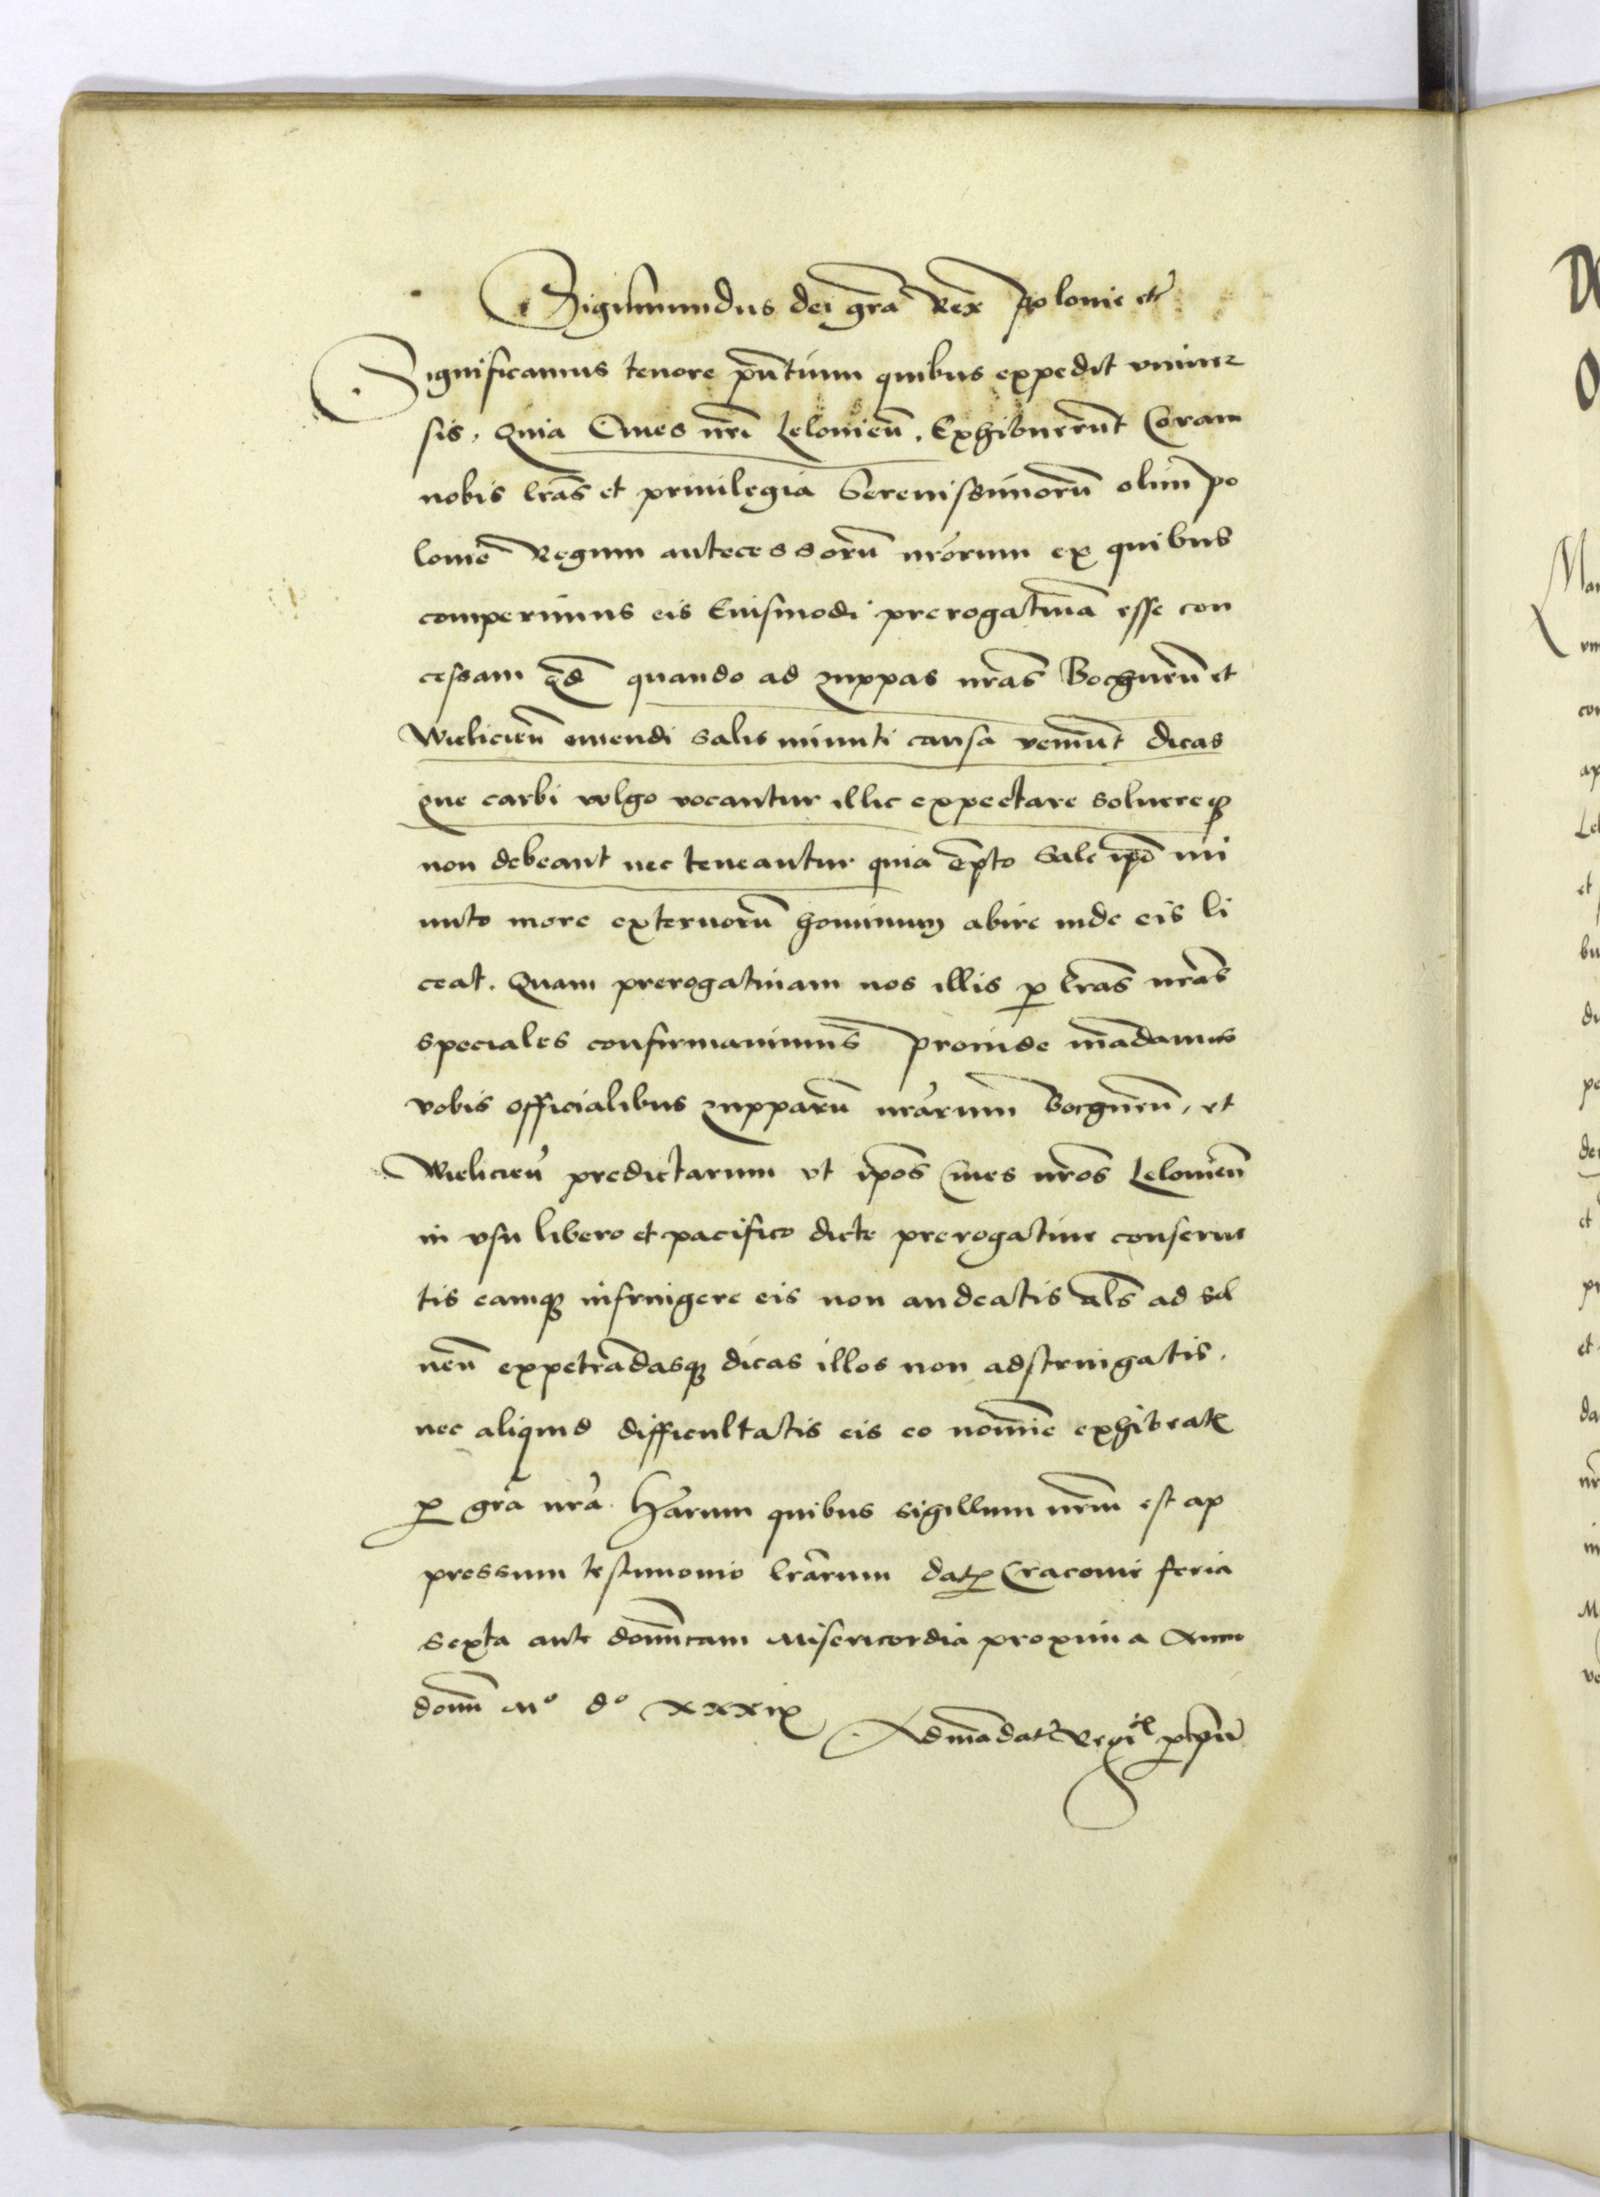 Sigismundus dei grã Rex Polonie etc
Significamus tenore pñtium quibus expedit vniuer
sis, Quia Ciues nrĩ Lelouieñ. Exhibuerũt Coram
nobis lrãs et priuilegia Serenissimorũ olim Po
lonie Regum antecessorũ nrõrum ex quibus
comperimus eis Euismodi prerogatiuã esse con
cessam qd quando ad zuppas nrãs Bochneñ et
Wielicieñ emendi salis minuti causa veniũt dicas
que carbi vulgo vocantur illic expectare soluereq3
non debeant nec teneantur quia ẽpto sale ipõ mi
nuto more externorũ hominum abire inde eis li
ceat. Quam prerogatiuam nos illis p lrãs nrãs
speciales confirmauimus Proinde mãdamus
vobis officialibus zupparũ nrãrum Bochneñ, et
Wielicieñ predictarum vt ipõs Ciues nrõs Lelouieñ
in vsu libero et pacifico dicte prerogatiue conserue
tis eamq3 infringere eis non audeatis als ad sol
ueñ expectãdasq3 dicas illos non adstringatis.
nec aliquid difficultatis eis eo nomĩe exhibeatis
p grã nrã. Harum quibus sigillum nrm̃ est ap
pressum testimonio lrãrum dat Cracouie feria
sexta ante domĩcam Misericordia proxima Anno
domĩ Mº dº xxxix
Ad mãdatũ Regie